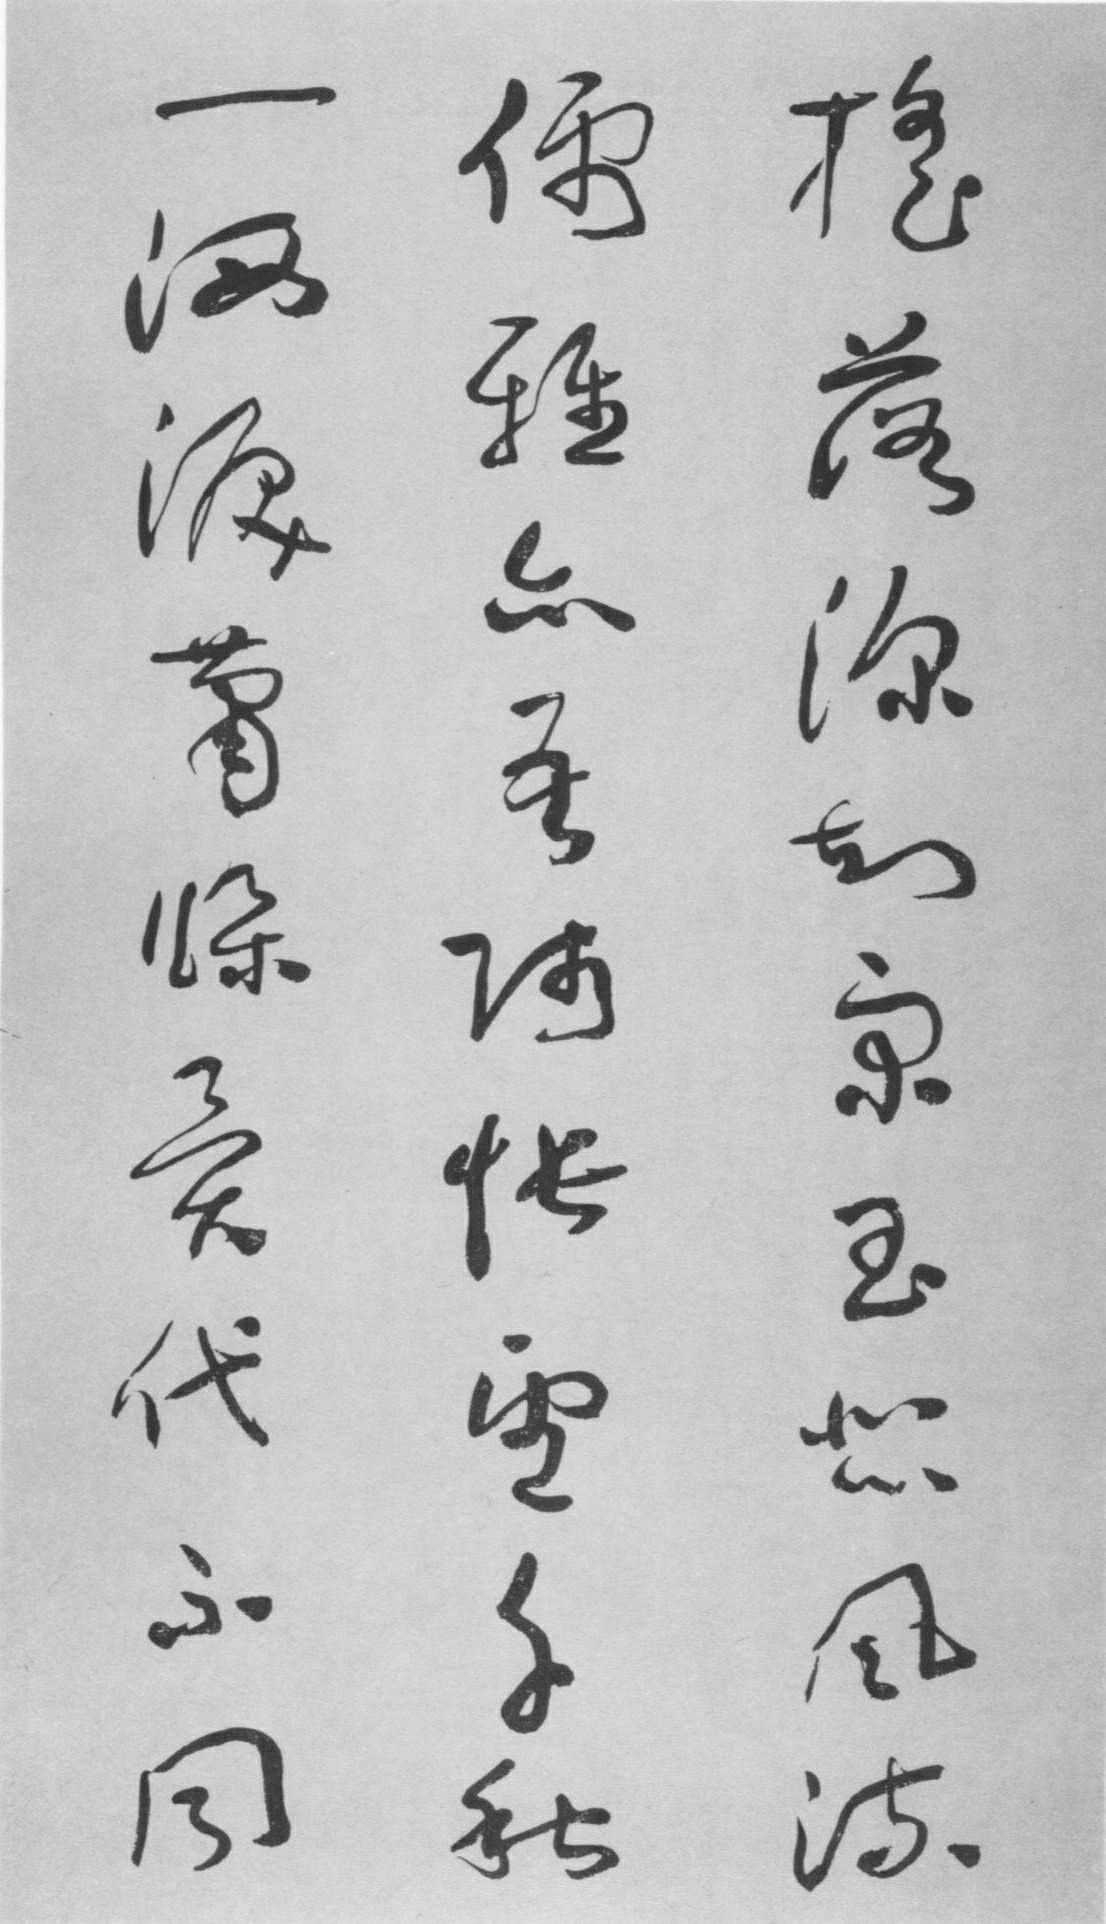 搖落深知宋玉悲風流
儒雅亦吾師悵望千秋
一洒淚蕭條異代不同